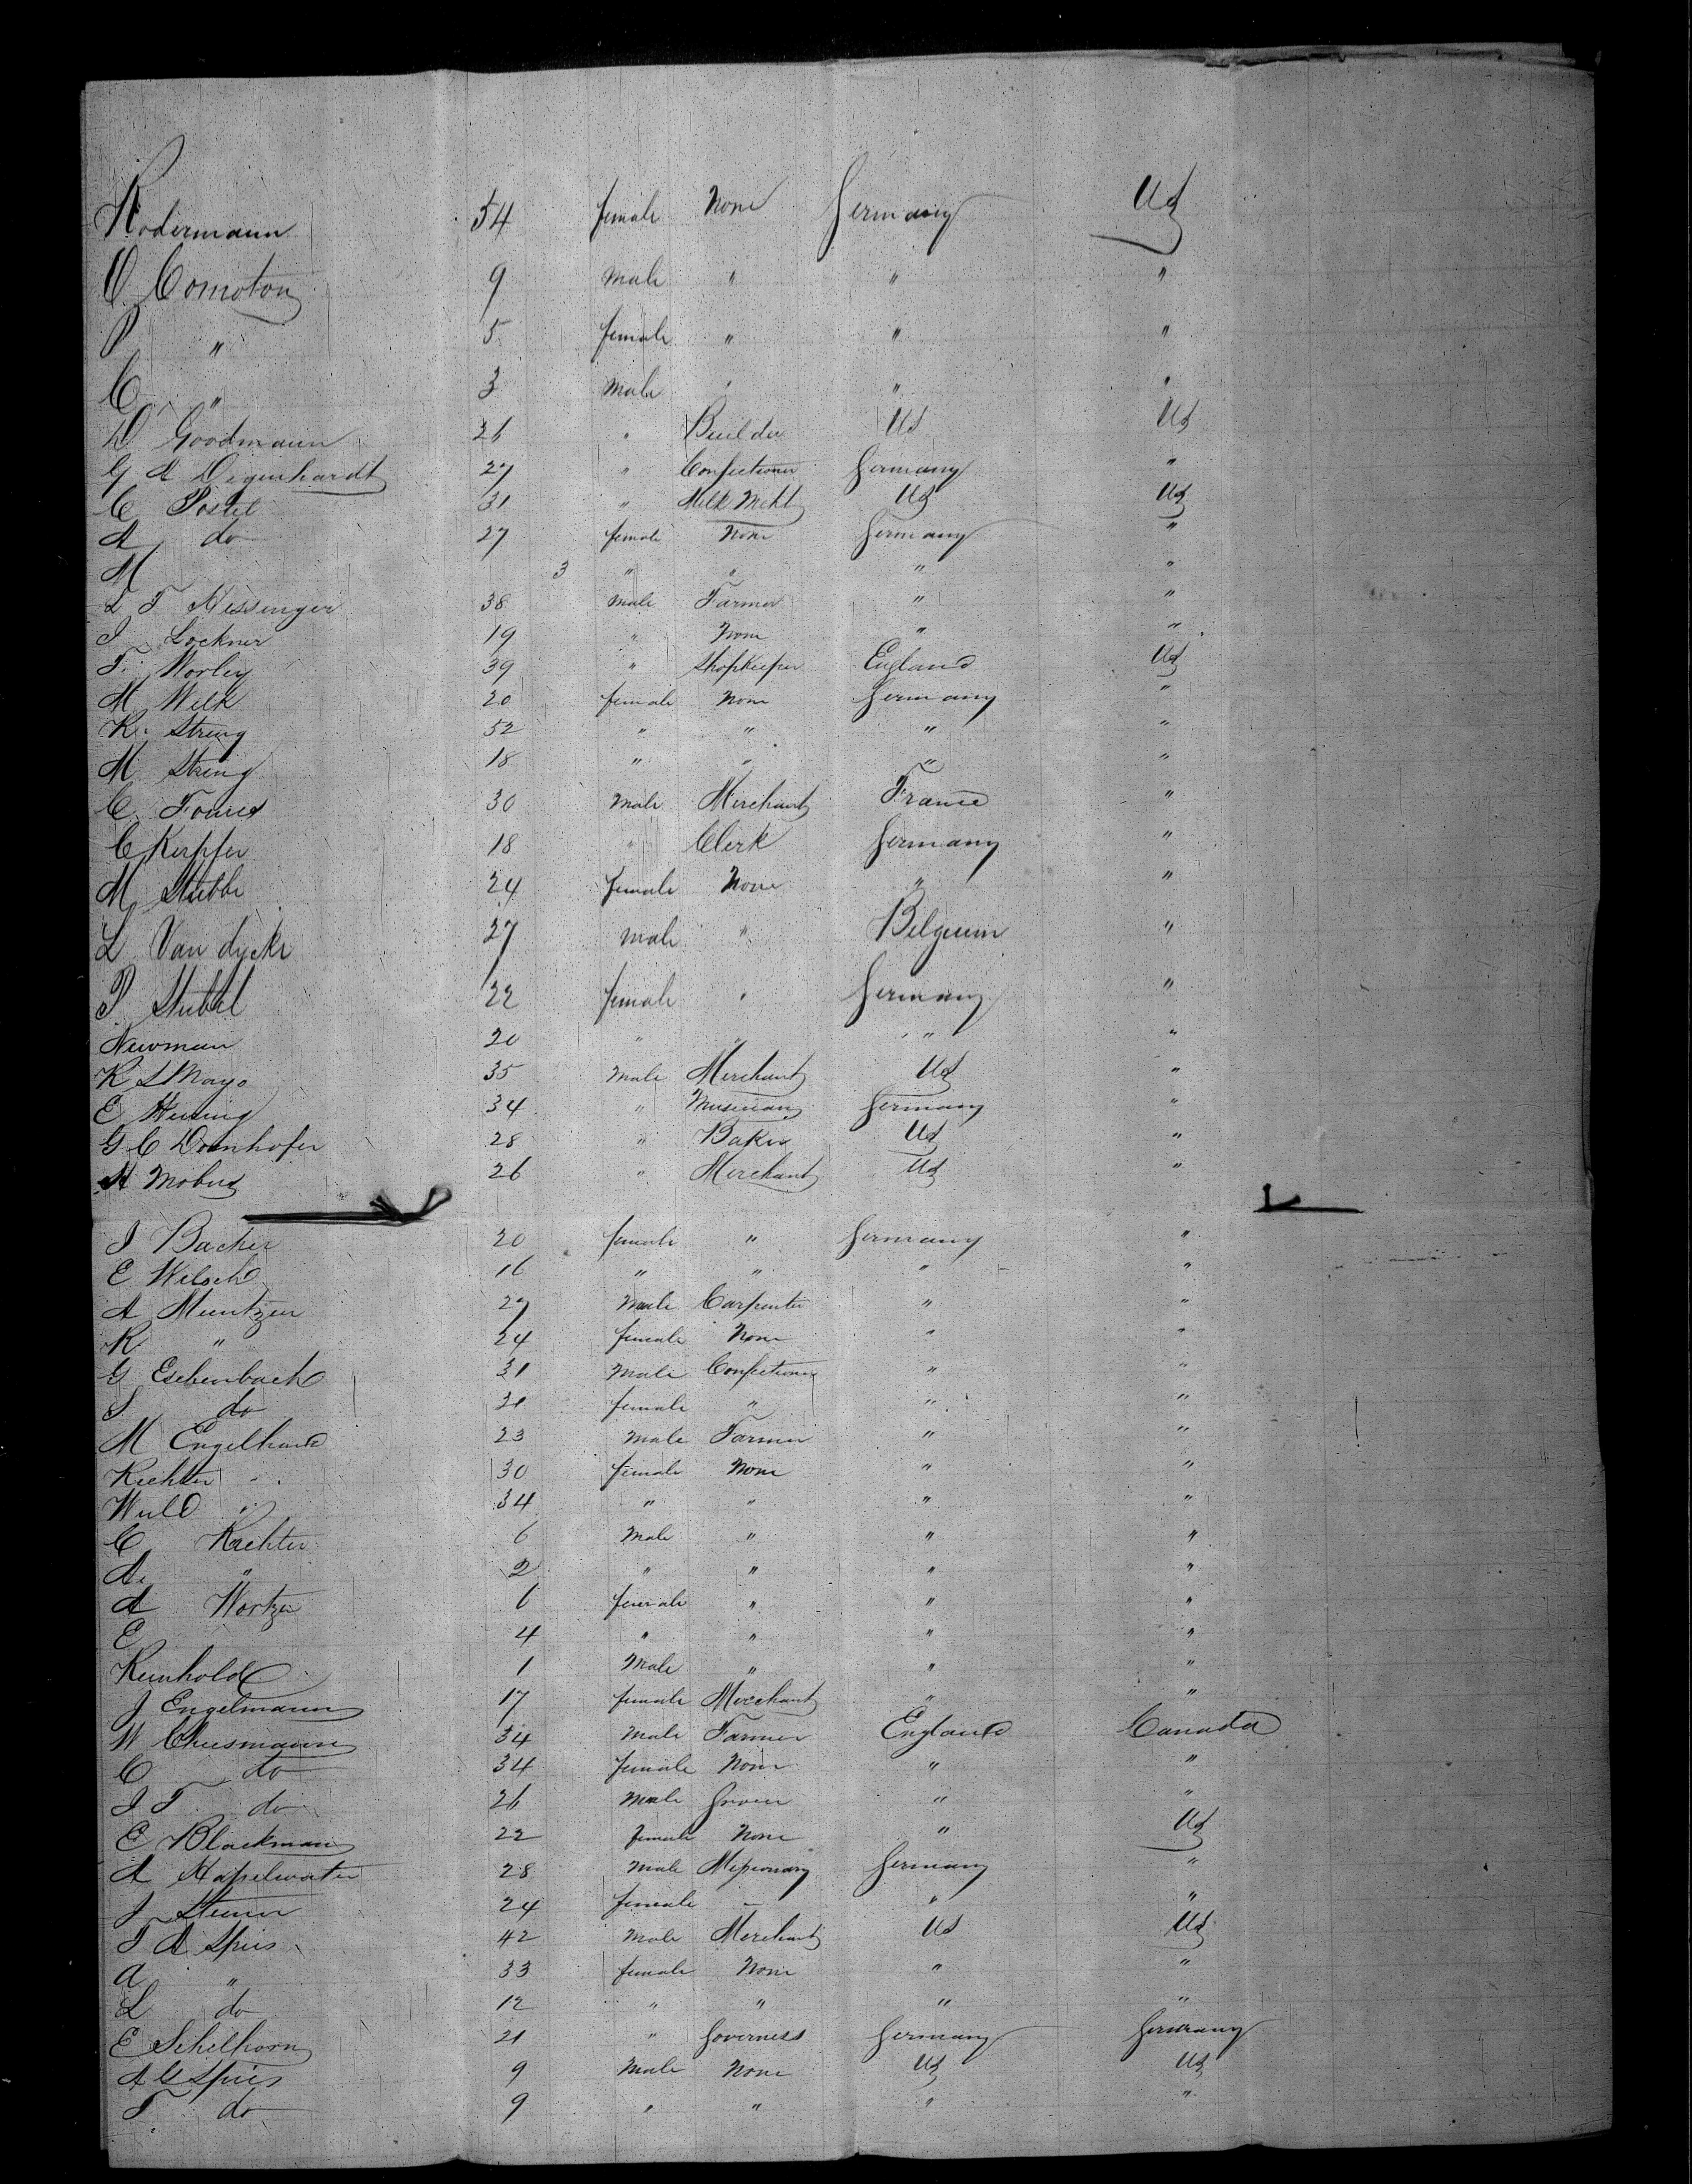 Rodermann 54 female None Germany US
O Comoton 9 Male " " "
P " 5 female " " "
C " 3 Male " " "
D Goodmann 26 " Builder US US
G A Degenhardt 27 " Confectioner Germany "
C Postel 31 " Milk Mcht US US
A do 27 female None Germany "
M 3 " " " "
L F Messenger 38 Male Farmer " "
J Lockner 19 " None " "
F. Worley 39 " Shopkeeper England US
M Wilk 20 female None Germany "
K. String 52 " " " "
M String 18 " " " "
C. 30 Male Merchant France "
C Kerpfer 18 " Clerk Germany "
M Stubbe 24 female None " "
L Van dycke 27 male " Belgium "
P. Stubbel 22 female " Germany "
Newman 20 " " " "
K S Mayo 35 Male Merchant US "
E Hening 34 " Musician Germany "
G C Dornhofer 28 " Baker US "
A Mobus 26 " Merchant US "
J Backer 20 female " Germany "
E Welsch 16 " " " "
A Muntzer 27 Male Carpenter " "
K " 24 female None " "
G Eschenbach 31 Male Confectioner " "
S do 31 female " " "
M Engelhard 23 Male Farmer " "
Richter " 30 female None " "
" 34 " " " "
C Richter 6 Male " " "
A. " 2 " " " "
A Wortzen 6 female " " "
E 4 " " " "
Reinhold 1 Male " " "
J Engelmann 17 female Merchant " "
W Cheesmann 34 Male Farmer England Canada
C do 34 female None " "
J F do 26 Male Grocer " "
E Blackman 22 female None " US
A Hapelwater 28 Male Missionary Germany "
J Steiner 24 female — " "
F A Spies 42 Male Merchant US US
A " 33 female None " "
L do 12 " " " "
E Schelhorn 21 " Governess Germany Germany
A G Spies 9 Male None US US
F do 9 " " " "